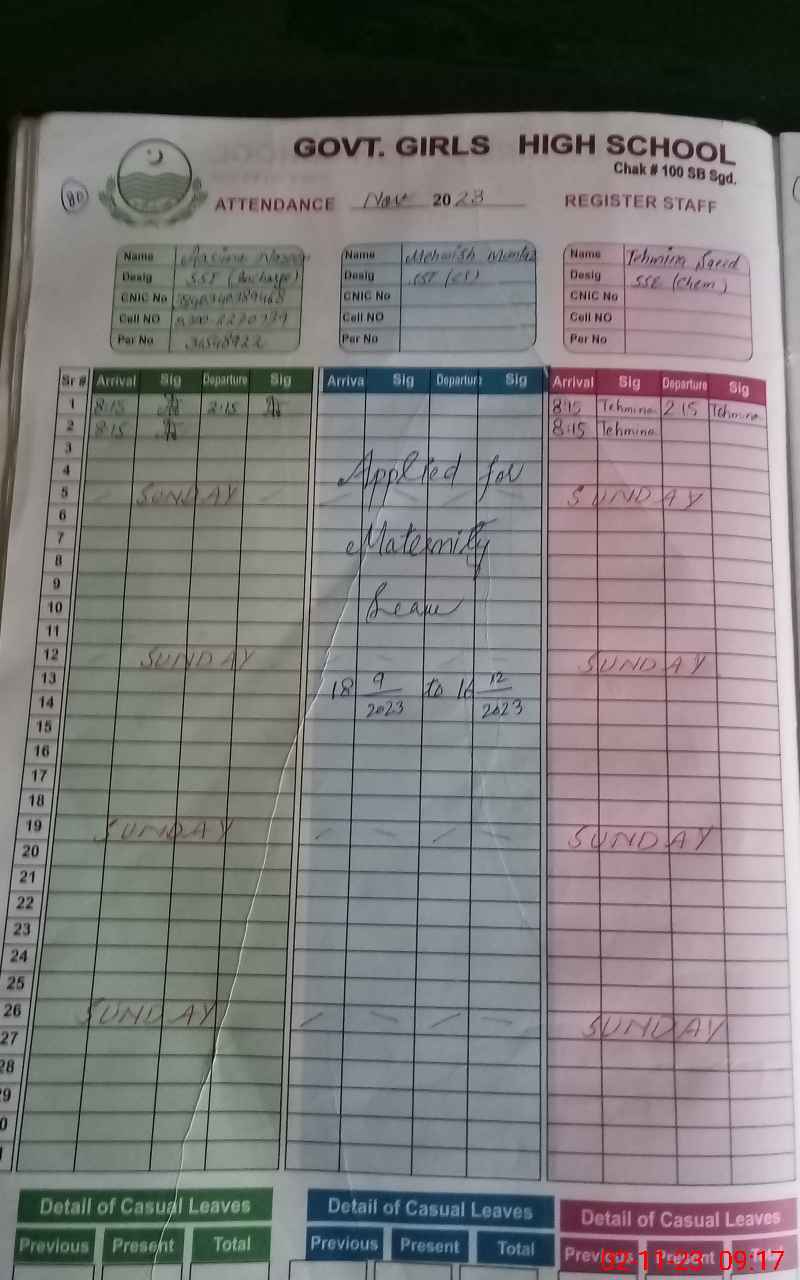 GOVT. GIRLS HIGH SCHOOL
Chak # 100 SB Sgd.
80
ATTENDANCE Nov 2023 REGISTER STAFF
Name Name Mehwish Mumtaz Name Tehmina Saeed
Desig SST (Incharge) Desig SST (CS) Desig SSE (Chem)
CNIC No CNIC No CNIC No
Cell NO Cell NO Cell NO
Per No Per No Per No
Sr # Arrival Sig Departure Sig Arriva Sig Departure Sig Arrival Sig Departure Sig
1 8:15 2:15 8:15 Tehmina 2:15 Tehmina
2 8:15 8:15 Tehmina
3
4 Applied for
5 SUNDAY SUNDAY
6
7 Maternity
8
9
10 Leave
11
12 SUNDAY SUNDAY
13 18 9/2023 to 16 12/2023
14
15
16
17
18
19 SUNDAY SUNDAY
20
21
22
23
24
25
26 SUNDAY SUNDAY
27
28
9
0
Detail of Casual Leaves Detail of Casual Leaves Detail of Casual Leaves
Previous Present Total Previous Present Total Previous Present
02-11-23 09:17